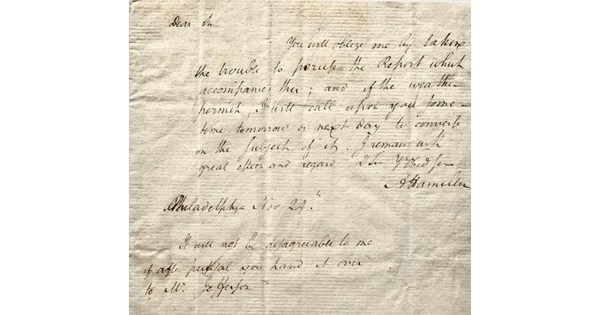 Dear Sir
You will oblige me by taking
the trouble to peruse the Report which
accompanies this; and if the weather
permit, I will call upon you some-
time tomorrow or next day to converse
on the Subject of it. I remain with
great esteem and regard
A Hamilton
Philadelphia Nov 24th
It will not be disagreeable to me
if after perusal you hand it over
to Mr. Jefferson